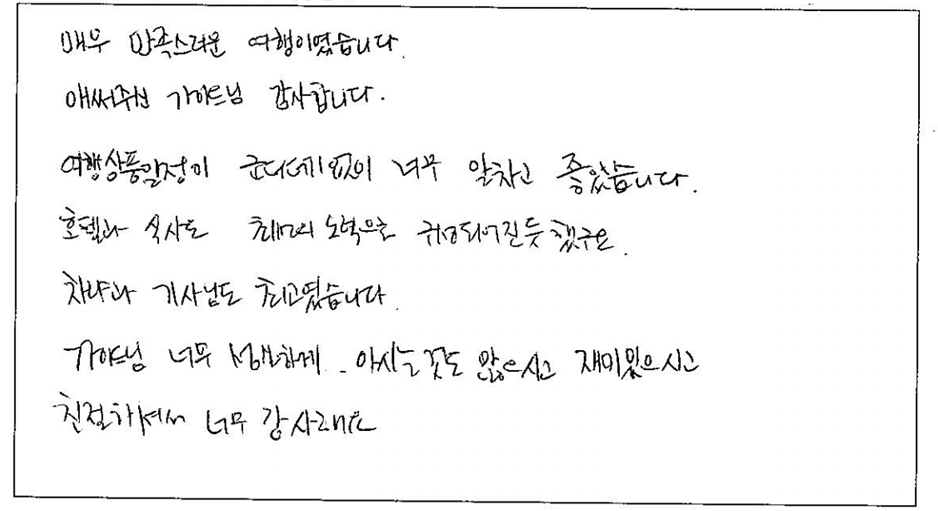 매우 만족스러운 여행이였습니다.
애써주신 가이드님 감사합니다.
여행상품일정이 군더더기없이 너무 알차고 좋았습니다.
호텔과 식사도 최고의 노력으로 구성되어진듯 했구요.
차량과 기사님도 최고였습니다.
가이드님 너무 하게 아시는 것도 많으시고 재미있으시고
친절하셔서 너무 감사해요